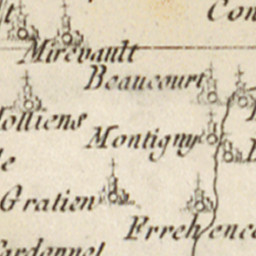 Con
Mirevault
Beaucourt
olliens
Montigny
le
Gratien
Frrehence
Cardonnet